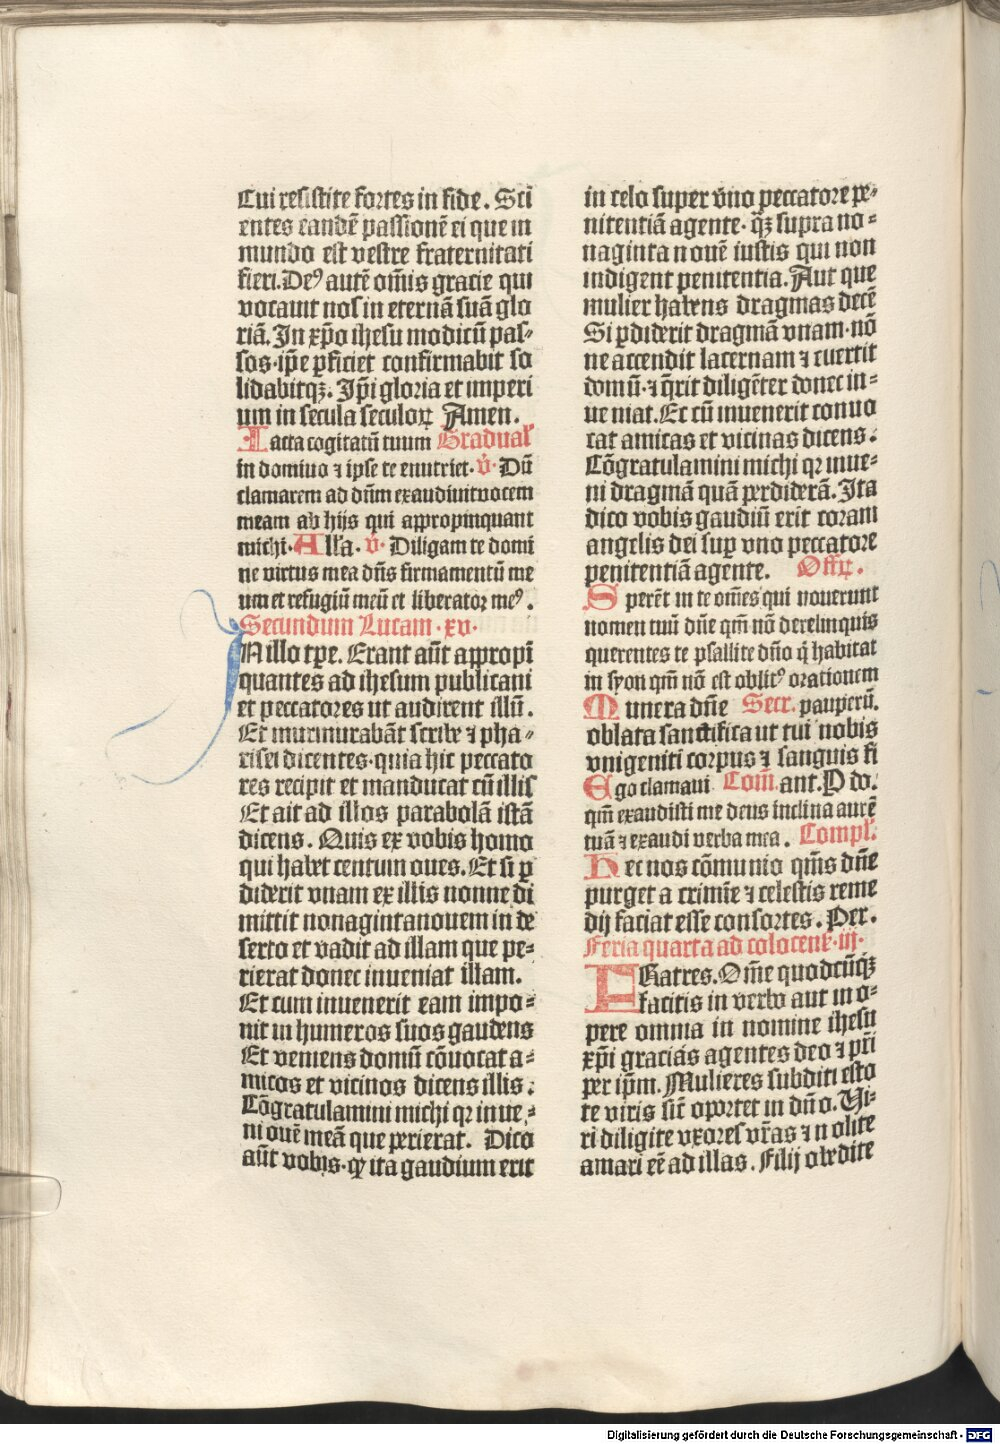 Cui resistite fortes in fide. Sci
entes eandē passionē ei que in
mundo est vestre fraternitati
fieri. Deꝰ autē om̄is gracie qui
vocauit nos in eternā suā glo
riā. In xp̄o ihesu modicū pas⸗
sos. ip̄e ꝑficiet confirmabit so
lidabitqꝫ. Ip̄i gloria et imperi
um in secula seculoꝝ Amen.
Iacta cogitatū tuum Gradual̕
in domino ⁊ ipse te enutriet. v̄. Dū
clamarem ad dn̄m exaudiuit vocem
meam ab hijs qui appropinquant
michi. All̕a. v̄. Diligam te domi
ne virtus mea dn̄s firmamentū me
um et refugiū meū et liberator meꝰ.
Secundum Lucam. xv.
IN illo tꝑe. Erant aūt appropī
quantes ad ihesum publicani
et peccatores ut audirent illū.
Et murmurabāt scribe ⁊ pha⸗
risei dicentes. quia hic peccato
res recipit et manducat cū illis
Et ait ad illos parabolā istā
dicens. Quis ex vobis homo
qui habet centum oues. Et si ꝑ
diderit vnam ex illis nonne di
mittit nonagintanouem in de
serto et vadit ad illam que pe⸗
rierat donec inueniat illam.
Et cum inuenerit eam impo⸗
nit in humeros suos gaudens
Et veniens domū cōuocat a⸗
micos et vicinos dicens illis:
Cōgratulamini michi qꝛ inue⸗
ni ouē meā que perierat. Dico
aūt vobis. qꝛ ita gaudium erit
in celo super vno peccatore pe⸗
nitentiā agente. qꝫ supra no⸗
naginta nouē iustis qui non
indigent penitentia. Aut que
mulier habens dragmas decē
Si ꝑdiderit dragmā vnam. nō
ne accendit lacernam ⁊ euertit
domū. ⁊ q̄rit diligēter donec in⸗
ue niat. Et cū inuenerit conuo
cat amicas et vicinas dicens:
Cōgratulamini michi qꝛ inue⸗
ni dragmā quā perdiderā. Ita
dico vobis gaudiū erit coram
angelis dei suꝑ vno peccatore
penitentiā agente. Offꝝ.
Sperēt in te om̄es qui nouerunt
nomen tuū dn̄e qm̄ nō derelinquis
querentes te psallite dn̄o q̄ habitat
in syon qm̄ nō est oblitꝰ orationem
Munera dn̄e Secr. pauperū.
oblata sanctifica ut tui nobis
vnigeniti corpus ⁊ sanguis fi
Ego clamaui Com̄. ant. P do.
qm̄ exaudisti me deus inclina aurē
tuā ⁊ exaudi verba mea. Compl̕.
Hec nos cōmunio qm̄s dn̄e
purget a crimīe ⁊ celestis reme
dij faciat esse consortes. Per.
Feria quarta ad colocen̄. iij.
FRatres. Om̄e quodcūqꝫ
facitis in verbo aut in o⸗
pere omnia in nomine ihesu
xp̄i gracias agentes deo ⁊ pr̄i
per ip̄m. Mulieres subditi esto
te viris sic̄ oportet in dn̄o. Vi⸗
ri diligite vxores vr̄as ⁊ nolite
amari eē ad illas. Filij obedite
Digitalisierung gefördert durch die Deutsche Forschungsgemeinschaft - DFG